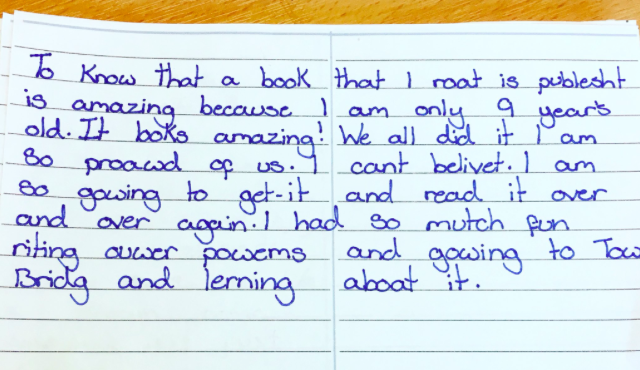 To Know that a book that I roat is publesht
is amazing because I am only 9 years
old. It boks amazing! We all did it I am
so proawd of us. I cant belivet. I am
so gowing to get-it and read it over
and over again. I had so mutch fun
riting ouwer powems and gowing to Tow
Bridg and lerning aboat it.